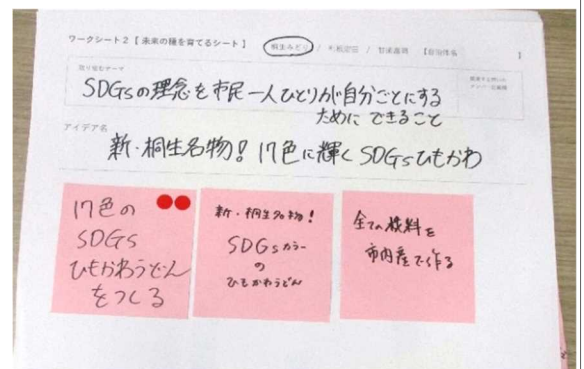 ワークシート2【 未来の種を育てるシート 】 桐生みどり / 利根沼田 / 甘楽富岡 【自治体名 】
取り組むテーマ
SDGsの理念を市民一人ひとりが自分ごとにする
ために できること
アイデア名
新・桐生名物! 17色に輝くSDGsひもかわ
17色の
SDGs
ひもかわうどん
をつくる
新・桐生名物!
SDGsカラー
の
ひもかわうどん
全ての
料を
市内産で作る